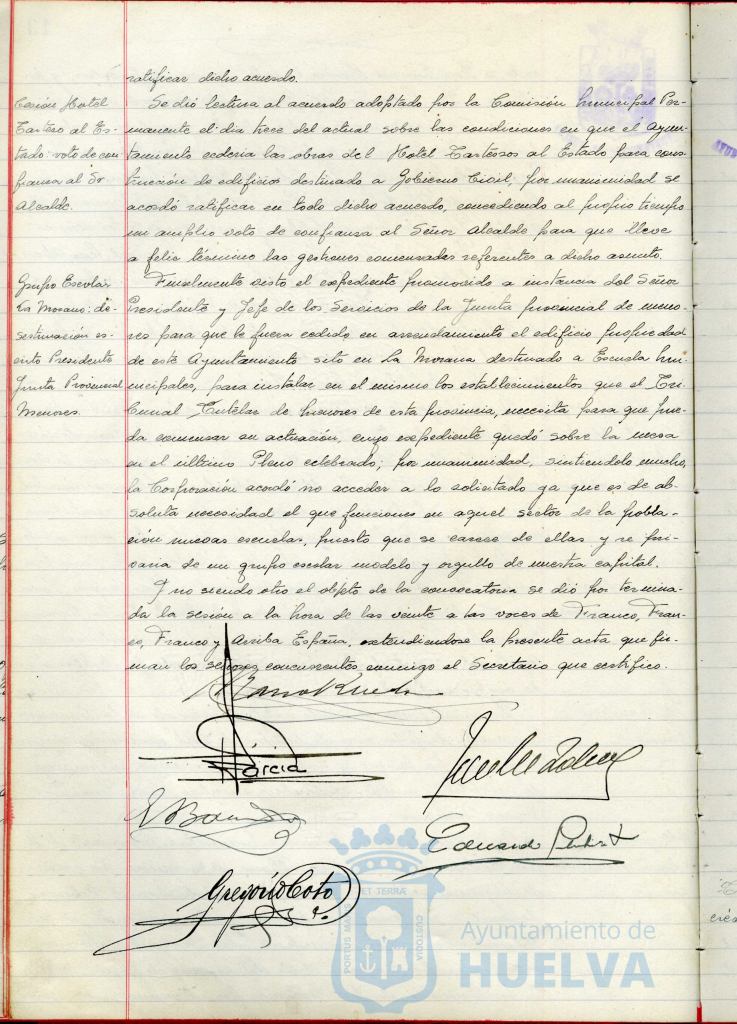 ratificar dicho acuerdo.
Cesión Hotel
Tarteso al Es-
tado: voto de con
fianza al Sr
Alcalde.
Se dió lectura al acuerdo adoptado por la Comisión Municipal Per-
manente el día trece del actual sobre las condiciones en que el Ayun-
tamiento cedería las obras del Hotel Tartessos al Estado para cons-
trucción de edificios destinado a Gobierno Civil; por unanimidad se
acordó ratificar en todo dicho acuerdo, concediendo al propio tiempo
un amplio voto de confianza al Señor Alcalde para que lleve
a feliz término las gestiones comenzadas referentes a dicho asunto.
Grupo Escolar
La Morana: de-
sestimación es-
crito Presidente
Junta Provincial
Menores.
Finalmente visto el expediente promovido a instancia del Señor
Presidente y Jefe de los Servicios de la Junta provincial de meno-
res para que le fuera cedido en arrendamiento el edificio propiedad
de este Ayuntamiento sito en La Morana destinado a Escuela Mu-
nicipales, para instalar en el mismo los establecimientos que el Tri-
bunal Tutelar de Menores de esta provincia, necesita para que pue-
da comenzar su actuación, cuyo expediente quedó sobre la mesa
en el último Pleno celebrado; por unanimidad, sintiéndolo mucho,
la Corporación acordó no acceder a lo solicitado ya que es de ab-
soluta necesidad el que funcionen en aquel sector de la pobla-
ción nuevas escuelas, puesto que se carece de ellas y se pri-
varía de un grupo escolar modelo y orgullo de nuestra capital.
Y no siendo otro el objeto de la convocatoria se dió por termina-
da la sesión a la hora de las veinte a las voces de Franco, Fran-
co, Franco y Arriba España, extendiéndose la presente acta que fir-
man los señores concurrentes conmigo el Secretario que certifico.
García
Eduardo
Gregorio Coto
PORTUS MARIS ET TERRÆ CUSTODIA
Ayuntamiento de
HUELVA